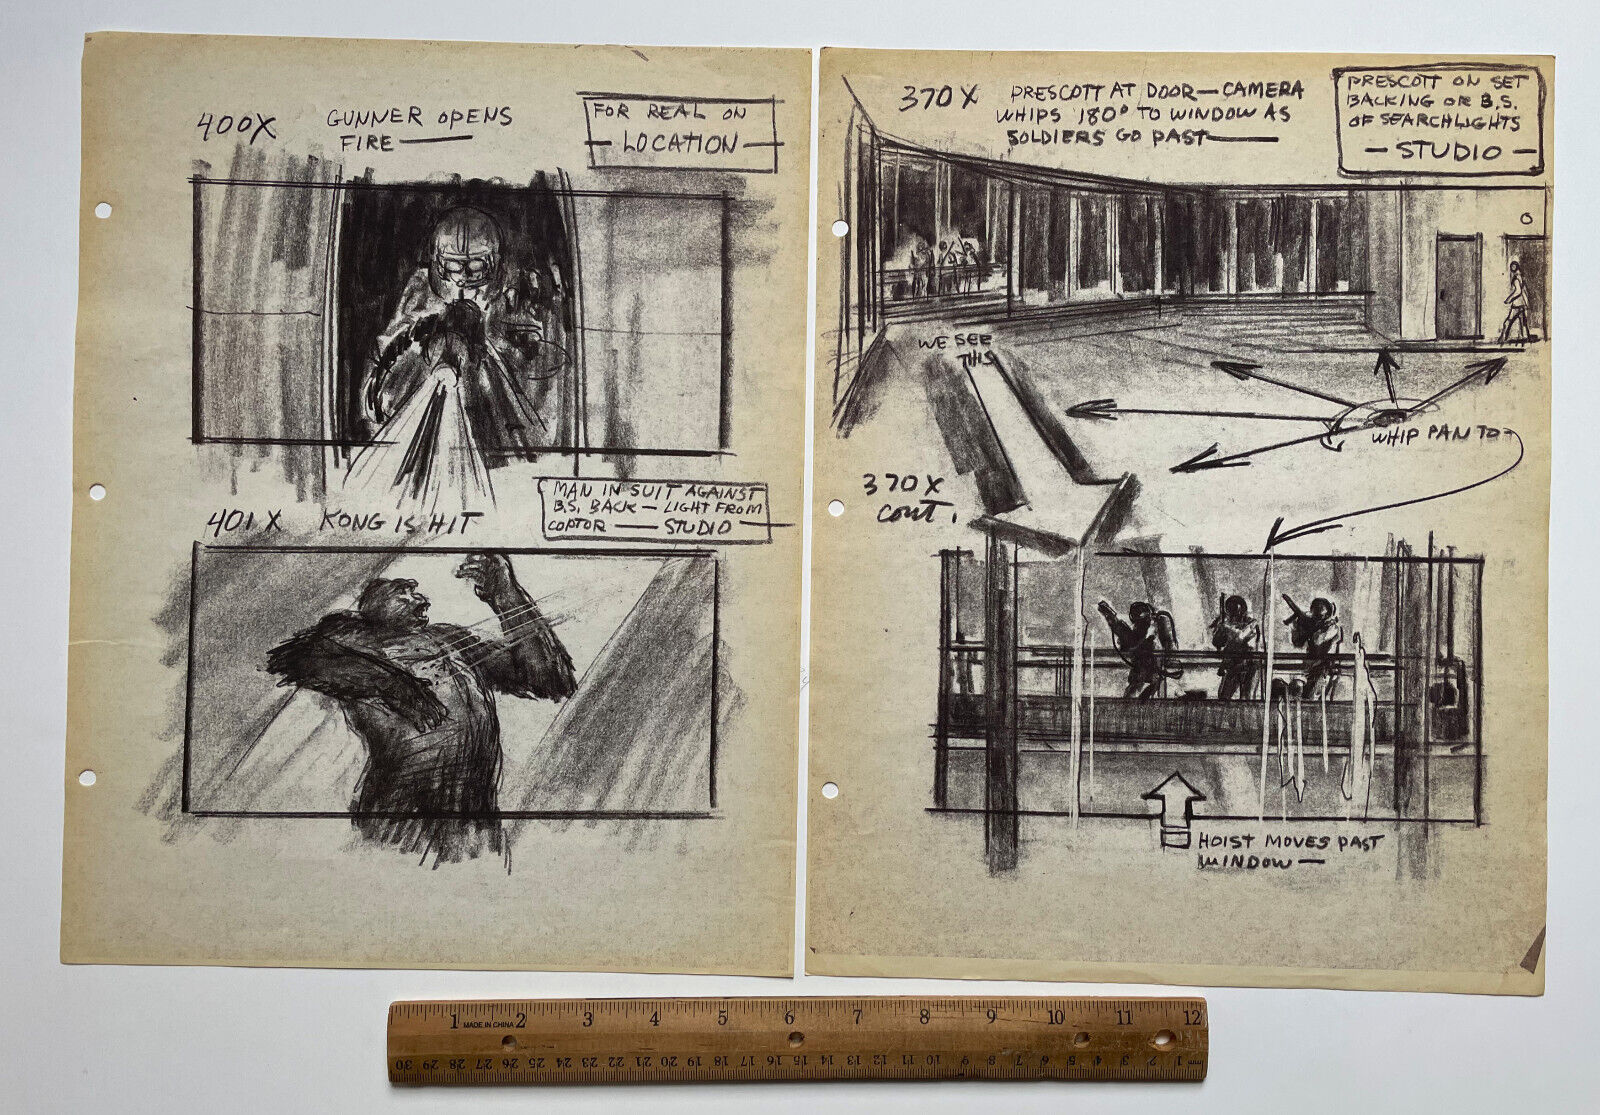 400X
GUNNER OPENS
FIRE —
FOR REAL ON
— LOCATION —
401X KONG IS HIT
MAN IN SUIT AGAINST
B.S. BACK — LIGHT FROM
COPTOR — STUDIO —
370X
PRESCOTT AT DOOR — CAMERA
WHIPS 180° TO WINDOW AS
SOLDIERS GO PAST —
PRESCOTT ON SET
BACKING OR B.S.
OF SEARCHLIGHTS
— STUDIO —
WE SEE
THIS
WHIP PAN TO
370X
CONT.
HOIST MOVES PAST
WINDOW —
1 MADE IN CHINA 2 3 4 5 6 7 8 9 10 11 12
30 29 28 27 26 25 24 23 22 21 20 19 18 17 16 15 14 13 12 11 10 9 8 7 6 5 4 3 2 1 mm